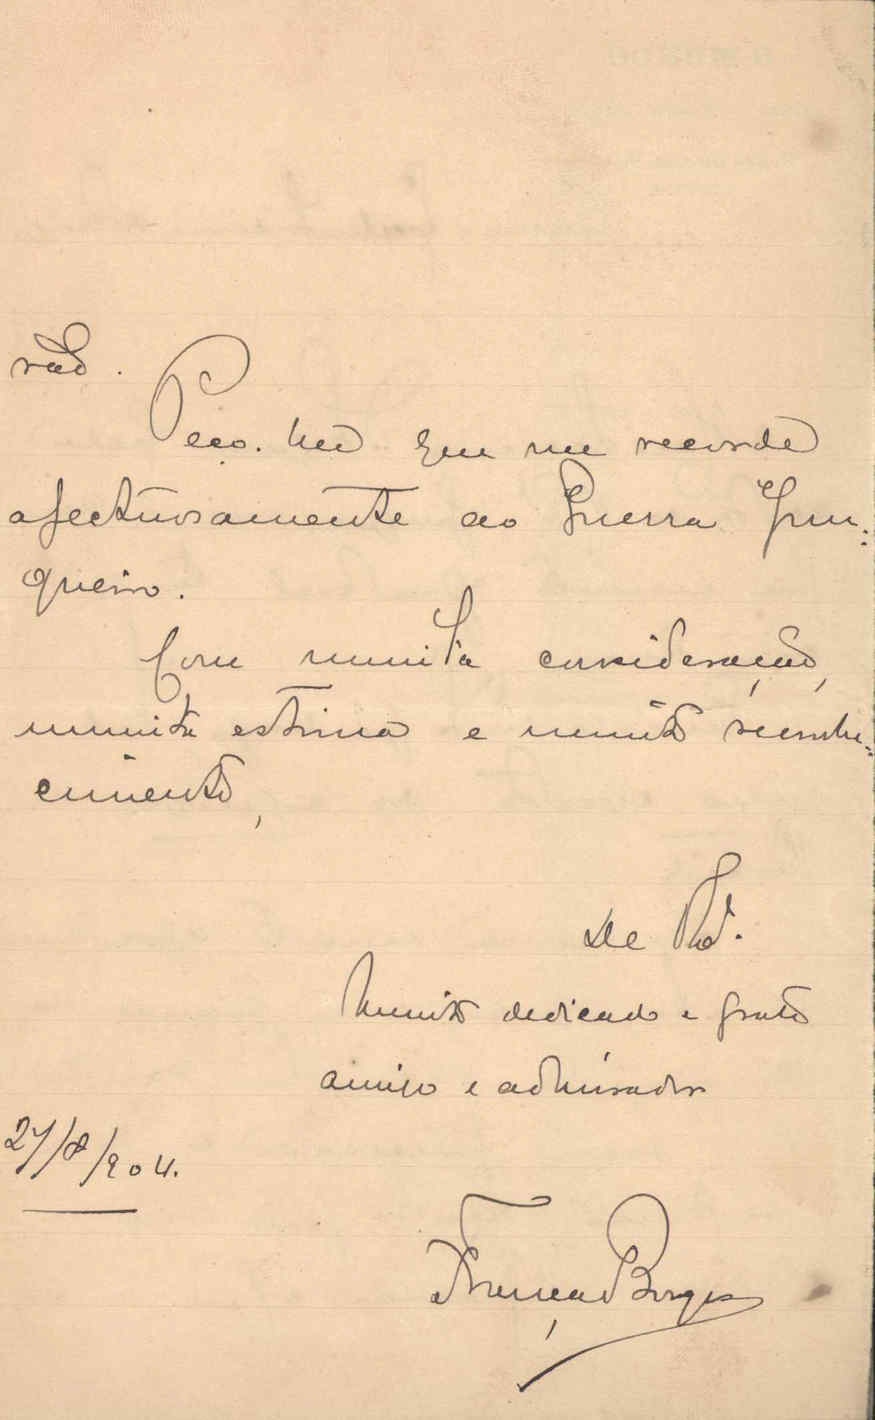 rão.
Peço-lhe que me recorde
afectuosamente ao Guerra Jun=
queiro.
Com muita consideração,
muita estima e muito reconhe=
cimento,
De V.
Muito dedicado e grato
amigo e admirador
27/8/904.
França Borges